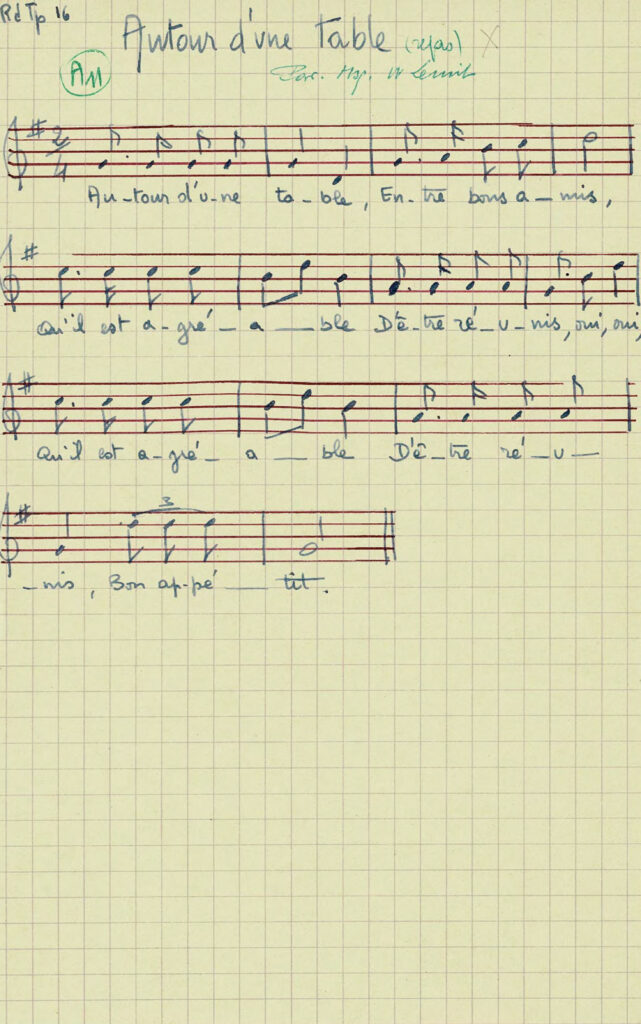 Rd Tp 16
Autour d'une table (repas) X
A11
2/4
Au-tour d'u-ne ta-ble, En-tre bons a-mis,
Qu'il est a-gré- a-ble D'ê-tre ré-u-nis, oui, oui,
Qu'il est a-gré- a-ble D'ê-tre ré-u-
3
-nis, Bon ap-pé-tit.